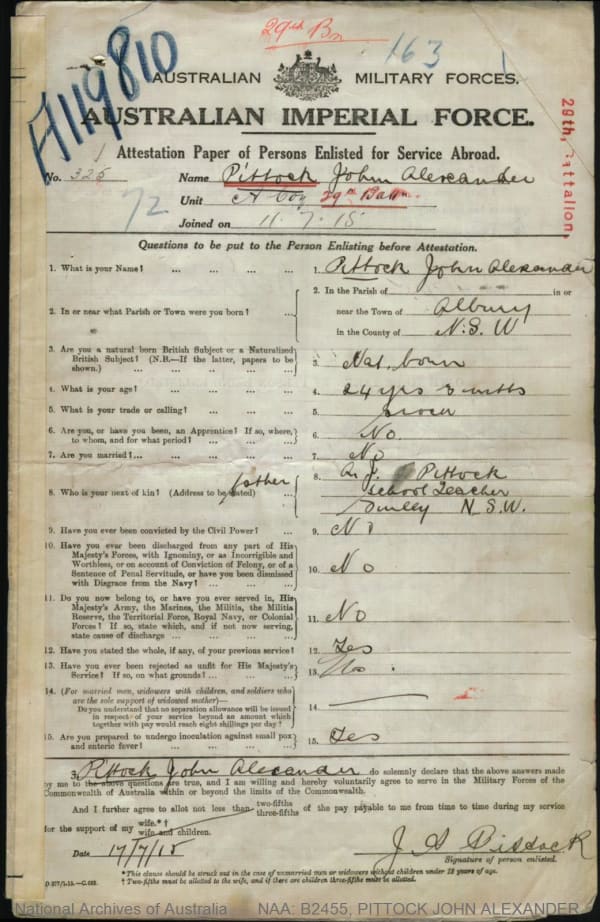 29th Bn
163
A119810
AUSTRALIAN MILITARY FORCES.
AUSTRALIAN IMPERIAL FORCE.
29th, Battalion,
Attestation Paper of Persons Enlisted for Service Abroad.
No. 325 Name Pittock John Alexander
72
Unit A Coy 29th Battn.
Joined on 11.7.15
Questions to be put to the Person Enlisting before Attestation.
1. What is your Name? ... ... ... 1. Pittock John Alexander
2. In or near what Parish or Town were you born? ... 2. In the Parish of in or
near the Town of Albury
in the County of N.S.W
3. Are you a natural born British Subject or a Naturalized
British Subject? (N.B.—If the latter, papers to be
shown.) ... ... ... ... 3. Nat. born
4. What is your age? ... ... ... 4. 24 yrs 3 mths
5. What is your trade or calling? ... ... ... 5.
6. Are you, or have you been, an Apprentice? If so, where,
to whom, and for what period? ... ... ... 6. No.
7. Are you married? ... ... ... ... 7. No
8. Who is your next of kin? (Address to be stated) father 8. Pittock
School Teacher
N.S.W.
9. Have you ever been convicted by the Civil Power? ... 9. No
10. Have you ever been discharged from any part of His
Majesty's Forces, with Ignominy, or as Incorrigible and
Worthless, or on account of Conviction of Felony, or of a
Sentence of Penal Servitude, or have you been dismissed
with Disgrace from the Navy? ... ... ... 10. No
11. Do you now belong to, or have you ever served in, His
Majesty's Army, the Marines, the Militia, the Militia
Reserve, the Territorial Force, Royal Navy, or Colonial
Forces? If so, state which, and if not now serving,
state cause of discharge ... ... ... ... 11. No
12. Have you stated the whole, if any, of your previous service? 12. Yes
13. Have you ever been rejected as unfit for His Majesty's
Service? If so, on what grounds? ... ... 13. No.
14. (For married men, widowers with children, and soldiers who
are the sole support of widowed mother)—
Do you understand that no separation allowance will be issued
in respect of your service beyond an amount which
together with pay would reach eight shillings per day? 14.
15. Are you prepared to undergo inoculation against small pox
and enteric fever? ... ... ... ... 15. Yes
I, Pittock John Alexander do solemnly declare that the above answers made
by me to the above questions are true, and I am willing and hereby voluntarily agree to serve in the Military Forces of the
Commonwealth of Australia within or beyond the limits of the Commonwealth.
And I further agree to allot not less than two-fifths three-fifths of the pay payable to me from time to time during my service
for the support of my wife.*† wife and children.
Date 17/7/15 J A Pittock
Signature of person enlisted.
*This clause should be struck out in the case of unmarried men or widowers without children under 18 years of age.
† Two-fifths must be allotted to the wife, and if there are children three-fifths must be allotted.
National Archives of Australia NAA: B2455, PITTOCK JOHN ALEXANDER